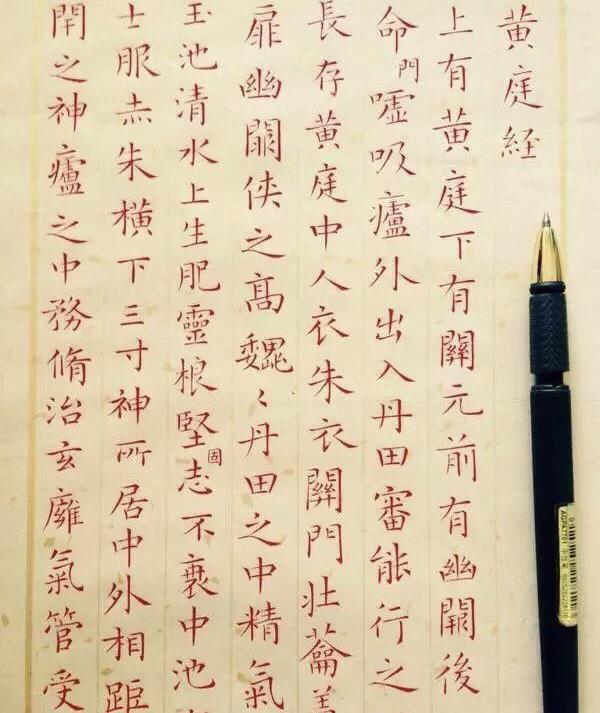 黃庭経
上有黃庭下有關元前有幽闕後
命門噓吸廬外出入丹田審能行之
長存黃庭中人衣朱衣關門壯蘥蓋
扉幽闕俠之高巍〻丹田之中精氣
玉池清水上生肥靈根堅固志不衰中池
士服赤朱橫下三寸神所居中外相距
閇之神廬之中務脩治玄廱氣管受
AGPA7701